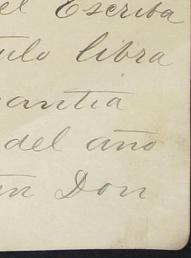 el Escriba
tulo libra
antia
del año
Don